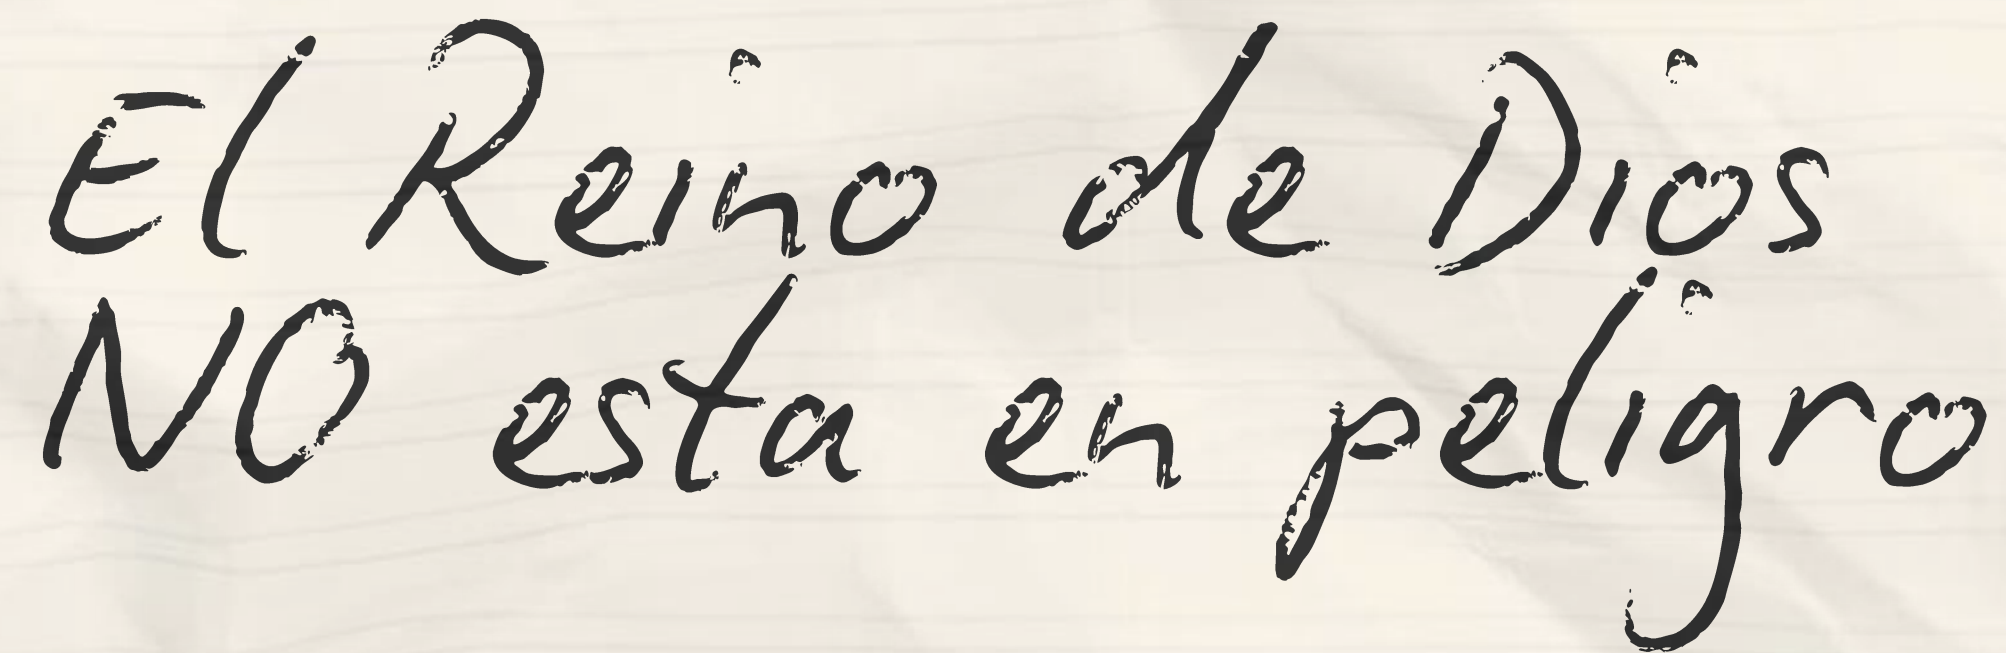 El Reino de Dios
NO esta en peligro